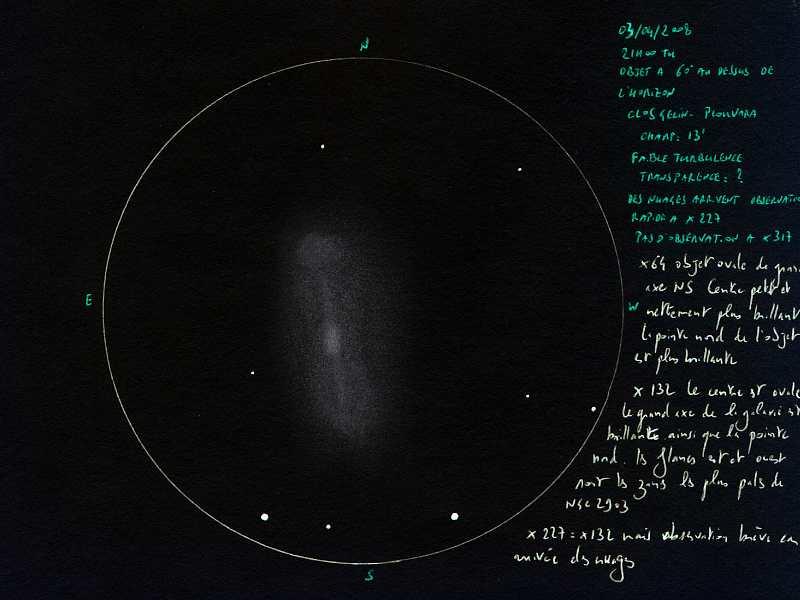 N
E
W
S
03/04/2008
21H00 TU
OBJET A 60° AU DESSUS DE
L'HORIZON
CLOS GELIN- PLOUVARA
CHAMP: 13'
FAIBLE TURBULENCE
TRANSPARENCE: ?
DES NUAGES ARRIVENT OBSERVATIO
RAPIDE A x227
PAS D'OBSERVATION A x317
x64 objet ovale de gran
axe NS Centre petit et
nettement plus brillant
la pointe nord de l'objet
est plus brillante
x 132 le centre est ovale
le grand axe de la galaxie est
brillante ainsi que la pointe
nord. les flancs est et ouest
sont les zones les plus pales de
NGC 2903
x 227 = x132 mais observation brève car
arrivée des nuages